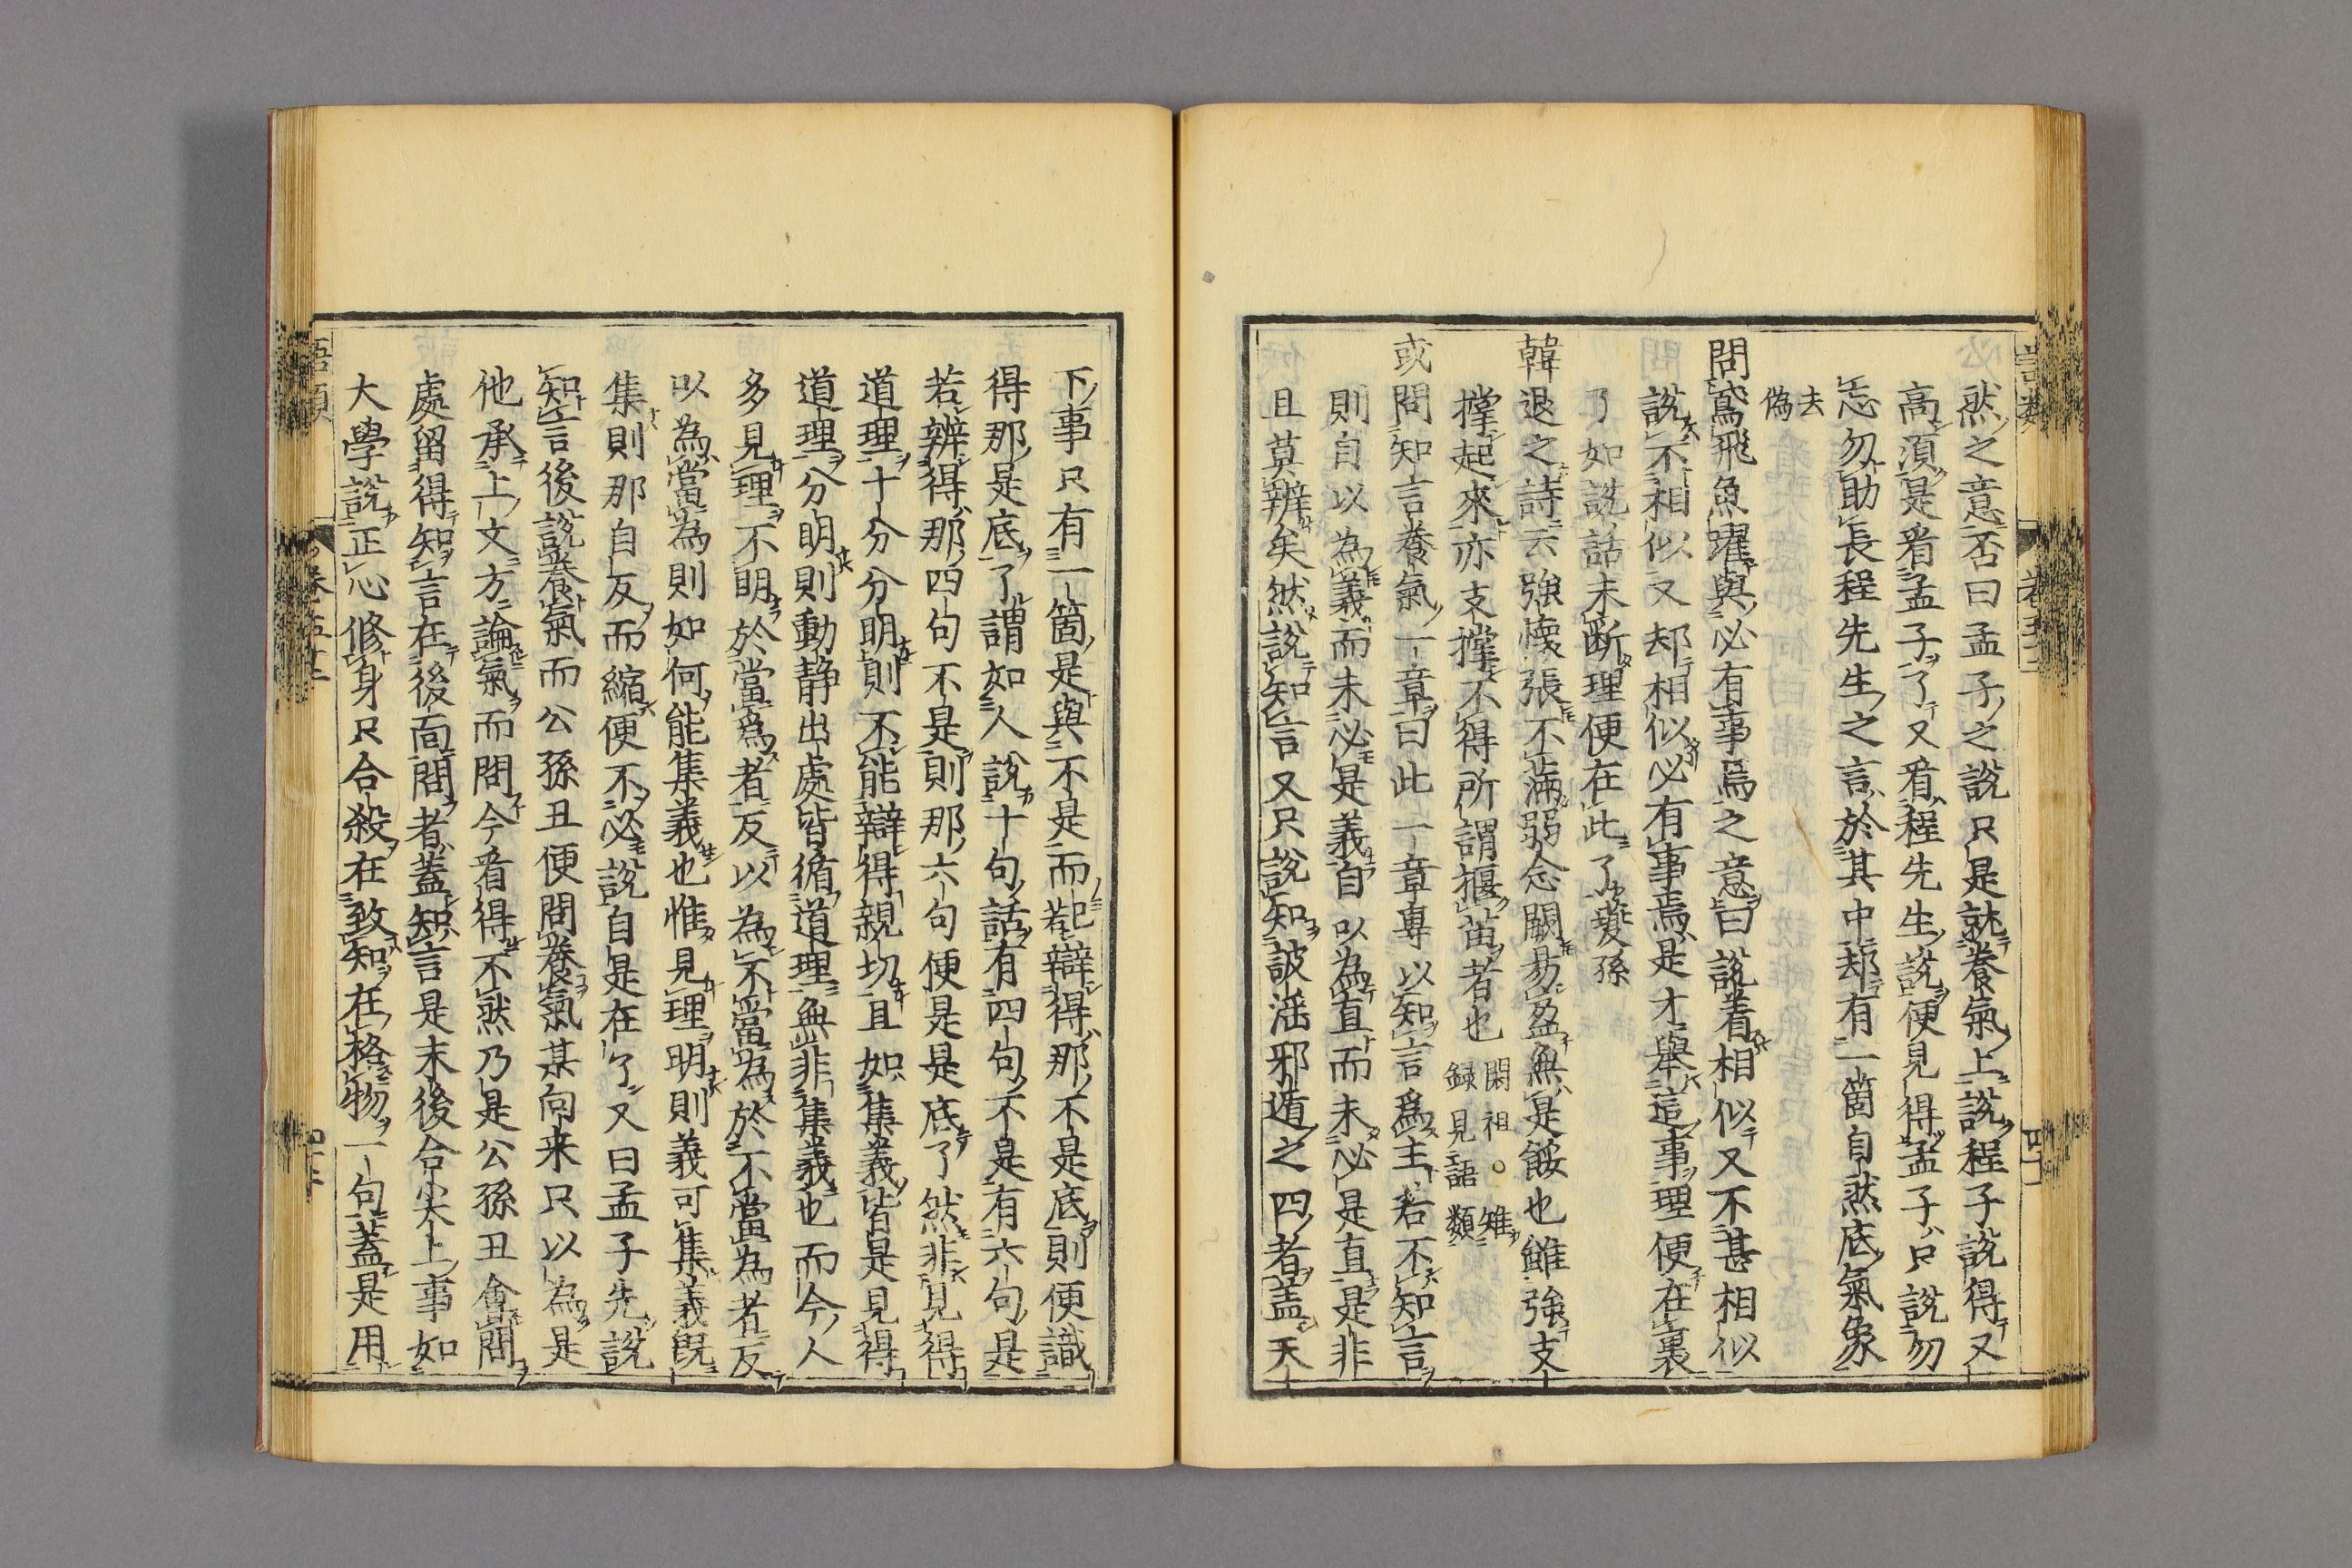 然之意否曰孟子之說只是就養氣上說程子說得又
高須是看孟子了又看程先生說便見得孟子只說勿
忘勿助長程先生之言於其中却有一箇自然底氣象
去
偽
問鳶飛魚躍與必有事焉之意曰說着相似又不甚相似
說不相似又却相似必有事焉是才舉這事理便在裏
了如說話未斷理便在此了夔孫
韓退之詩云強懐張不滿弱念闕易盈無是餒也雖強支
撑起來亦支撑不得所謂揠苗者也
閎祖。雉
録見語類
或問知言養氣一章曰此一章專以知言爲主若不知言
則自以為義而未必是義自以為直而未必是直是非
且莫辨矣然說知言又只說知詖淫邪遁之四者蓋天
下事只有一箇是與不是而若辯得那不是底則便識
得那是底了謂如人說十句話有四句不是有六句是
若辨得那四句不是則那六句便是是底了然非見得
道理十分分明則不能辯得親切且如集義皆是見得
道理分明則動静出處皆循道理無非集義也而今人
多見理不明於當爲者反以為不當為於不當為者反
以為當為則如何能集義也惟見理明則義可集義既
集則那自反而縮便不必說自是在了又曰孟子先說
知言後說養氣而公孫丑便問養氣某向来只以為是
他承上文方論氣而問今看得不然乃是公孫丑會問
處留得知言在後面問者蓋知言是末後合尖上事如
大學說正心修身只合殺在致知在格物一句蓋是用